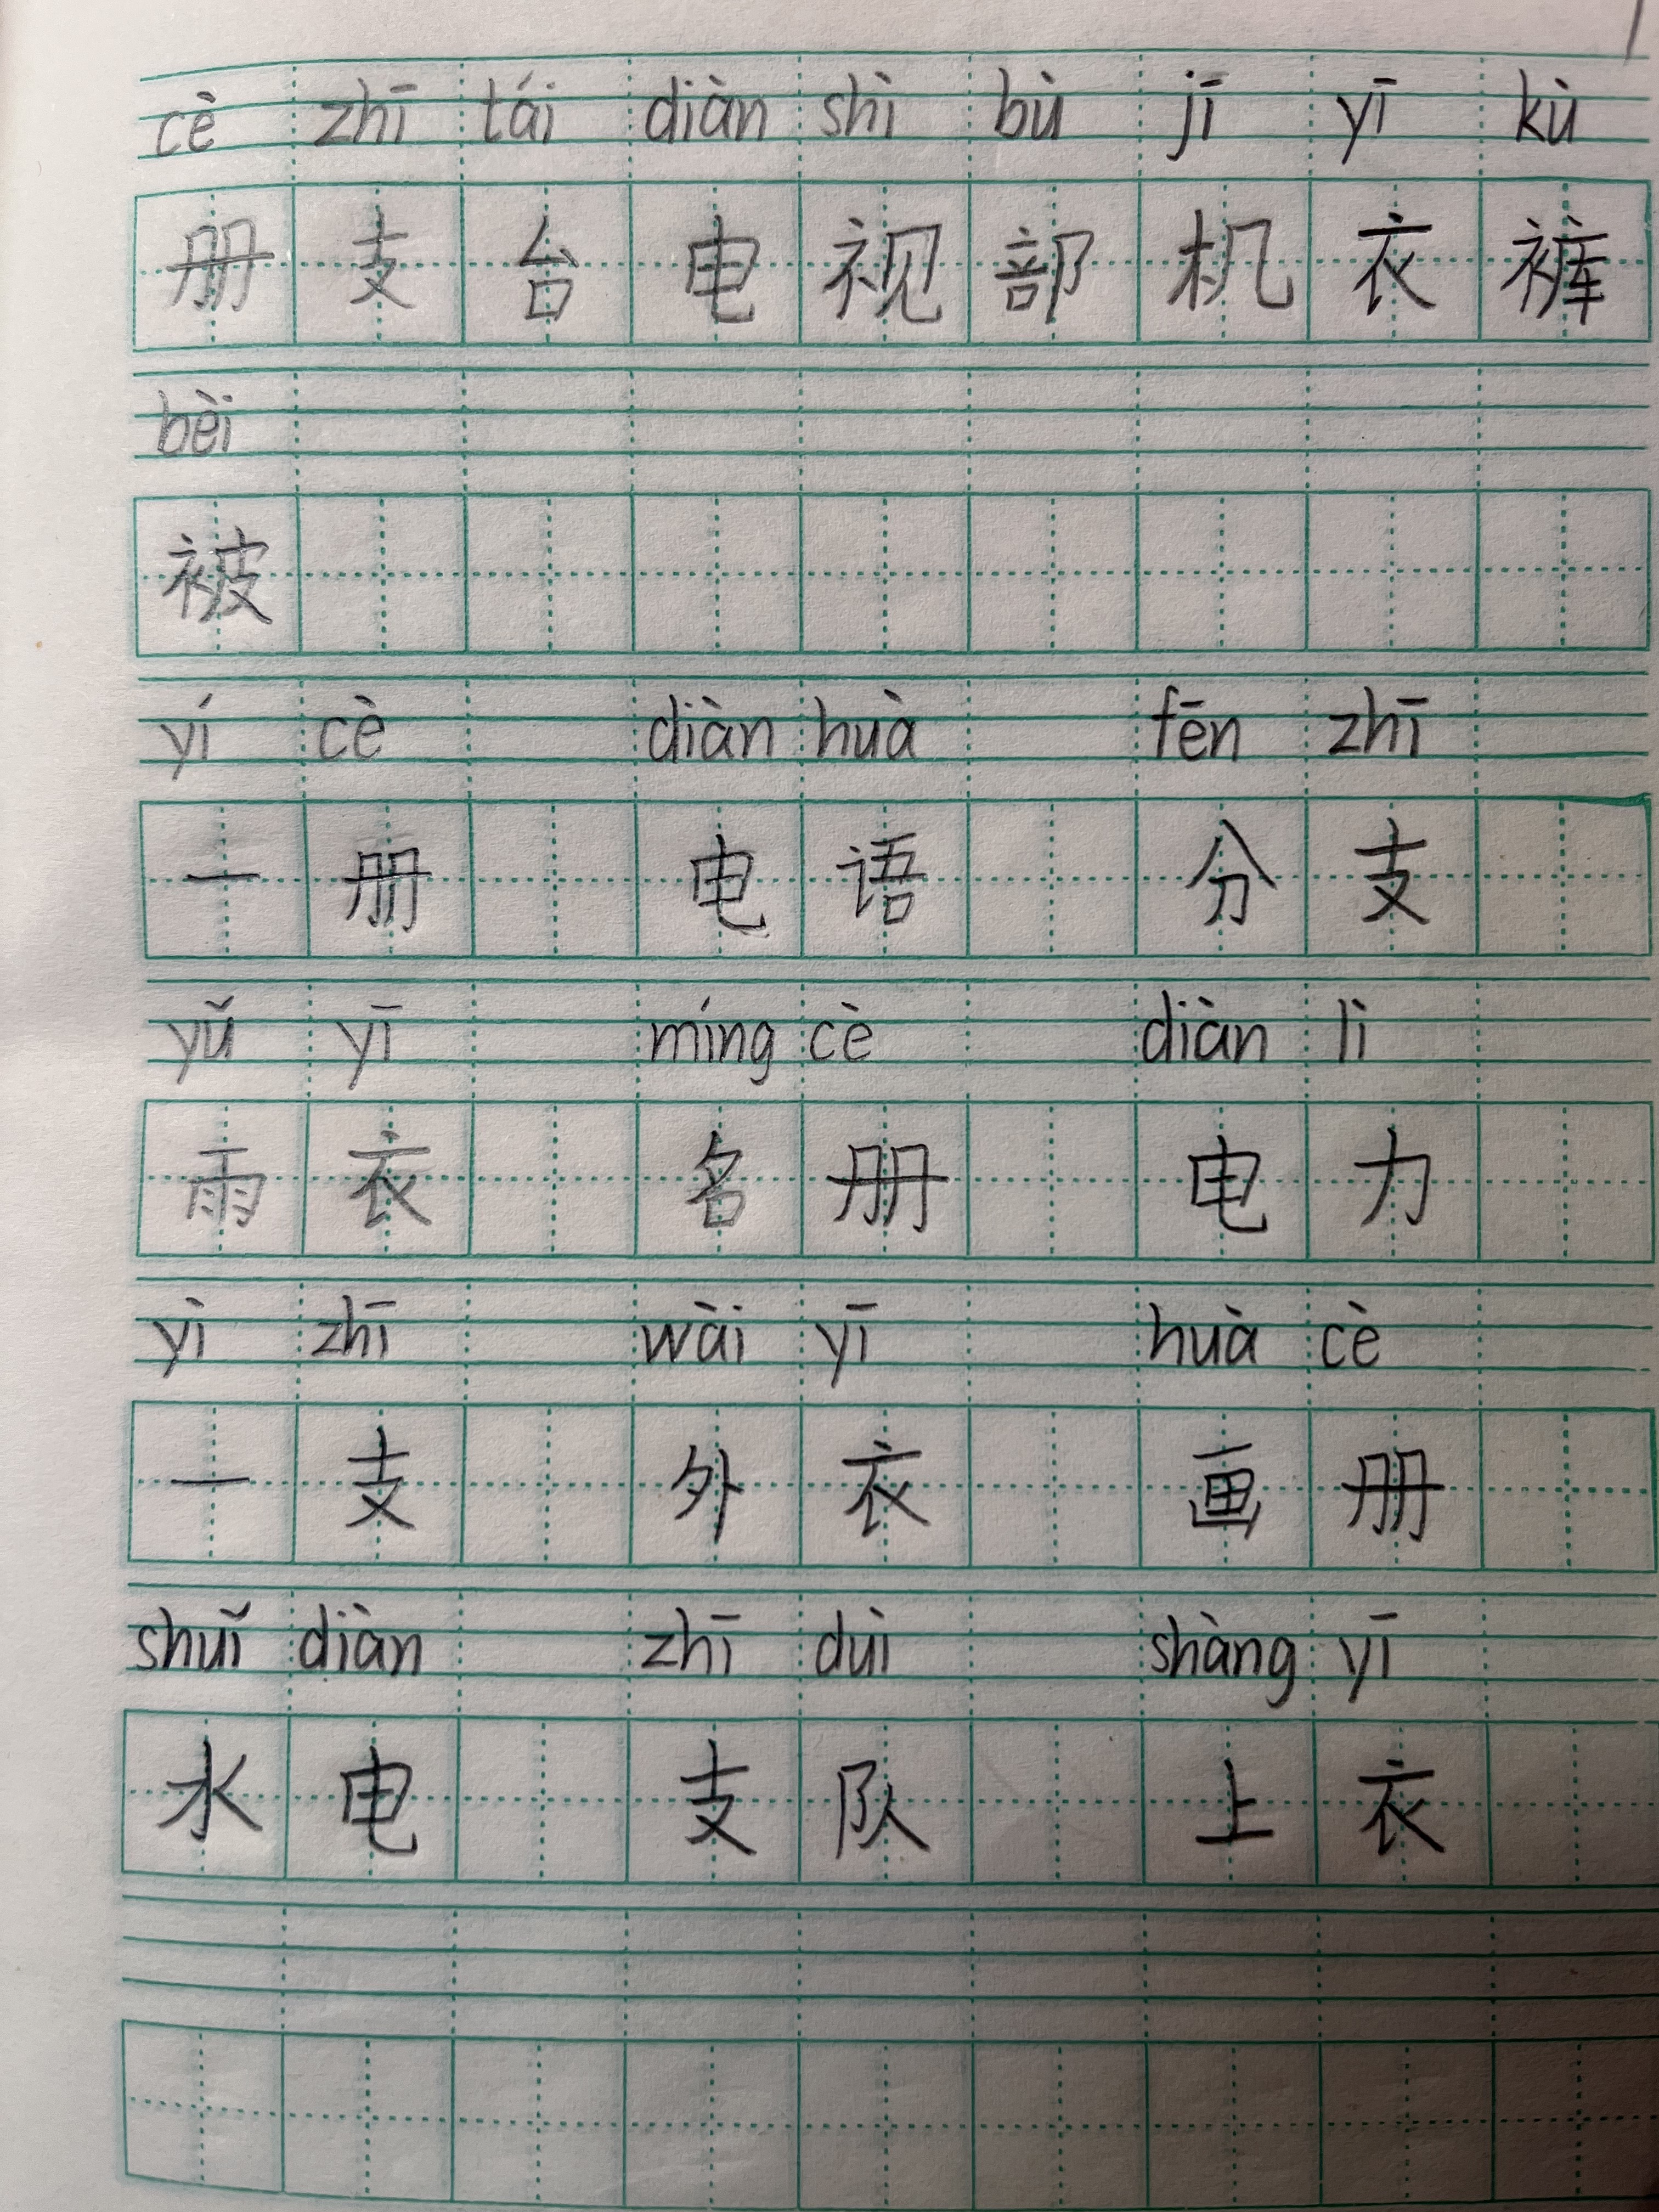 cè zhī tái diàn shì bù jī yī kù
册 支 台 电 视 部 机 衣 裤
bèi
被
yí cè diàn huà fēn zhī
一 册 电 语 分 支
yǔ yī míng cè diàn lì
雨 衣 名 册 电 力
yì zhī wài yī huà cè
一 支 外 衣 画 册
shuǐ diàn zhī duì shàng yī
水 电 支 队 上 衣